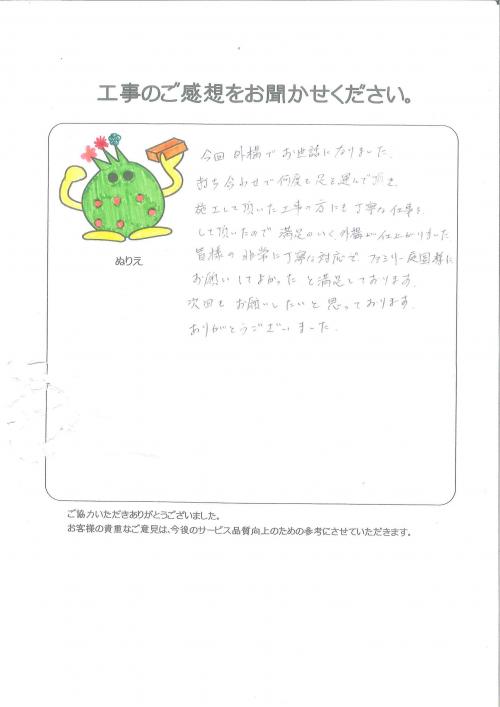 工事のご感想をお聞かせください。
今回 外構で お世話になりました。
打ち合わせで何度も足を運んで頂き、
施工して頂いた工事の方にも丁寧な仕事を
して頂いたので 満足のいく外構が仕上がりました
皆様の 非常に丁寧な対応で ファミリー庭園様に
お願いしてよかった と満足しております。
次回も お願いしたいと思っております。
ありがとうございました。
ぬりえ
ご協力いただきありがとうございました。
お客様の貴重なご意見は、今後のサービス品質向上のための参考にさせていただきます。